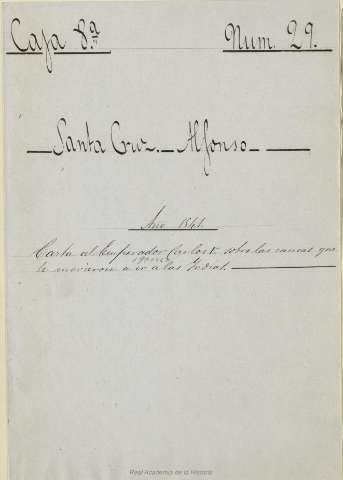 Caja 8.ª Num. 29.
Santa Cruz. Alfonso
Año 1541.
Carta al Emperador Carlos V. sobre las causas que
le movieron a ir a las Indias.
Real Academia de la Historia